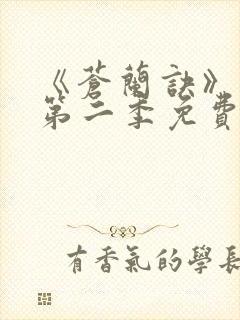 《蒼蘭訣》
第二季免費
有香氣的學長